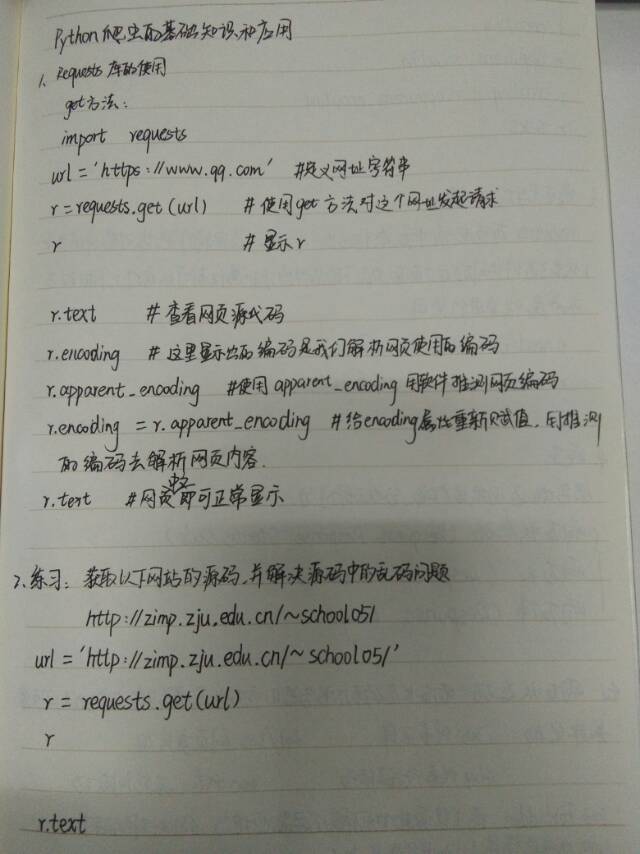 Python爬虫的基础知识和应用
1、Requests库的使用
get方法：
import requests
url = 'https://www.qq.com' #定义网址字符串
r = requests.get (url) # 使用get方法对这个网址发起请求
r # 显示r
r.text # 查看网页源代码
r.encoding # 这里显示出的编码是我们解析网页使用的编码
r.apparent_encoding #使用apparent_encoding用软件推测网页编码
r.encoding = r.apparent_encoding #给encoding属性重新赋值，用推测
的编码去解析网页内容.
r.text #网页中文即可正常显示
2、练习：获取以下网站的源码，并解决源码中的乱码问题
http://zimp.zju.edu.cn/~school05/
url = 'http://zimp.zju.edu.cn/~school05/'
r = requests.get(url)
r
r.text